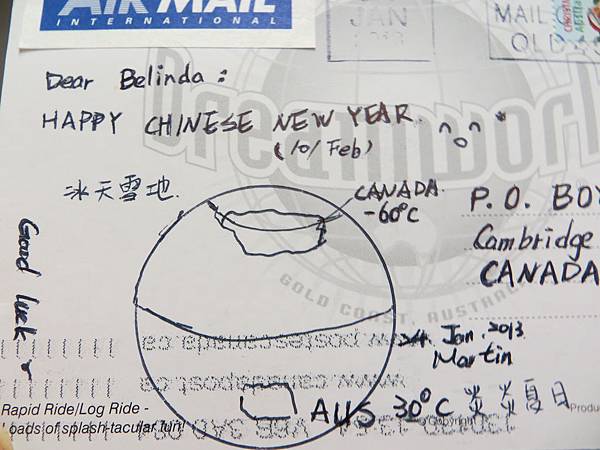 AIR MAIL
INTERNATIONAL
JAN
MAIL
QLD
Dear Belinda :
HAPPY CHINESE NEW YEAR.
(10/Feb)
Dreamworld
冰天雪地.
CANADA.
-60°C
P.O. BOX
Cambridge
CANADA
Good luck
GOLD COAST, AUSTRALIA
24. Jan. 2013
Martin
www.postescanada.ca
www.canadapost.ca
AUS 30°C 炎炎夏日
Rapid Ride/Log Ride -
loads of splash-tacular fun!
Produ
©Copyright